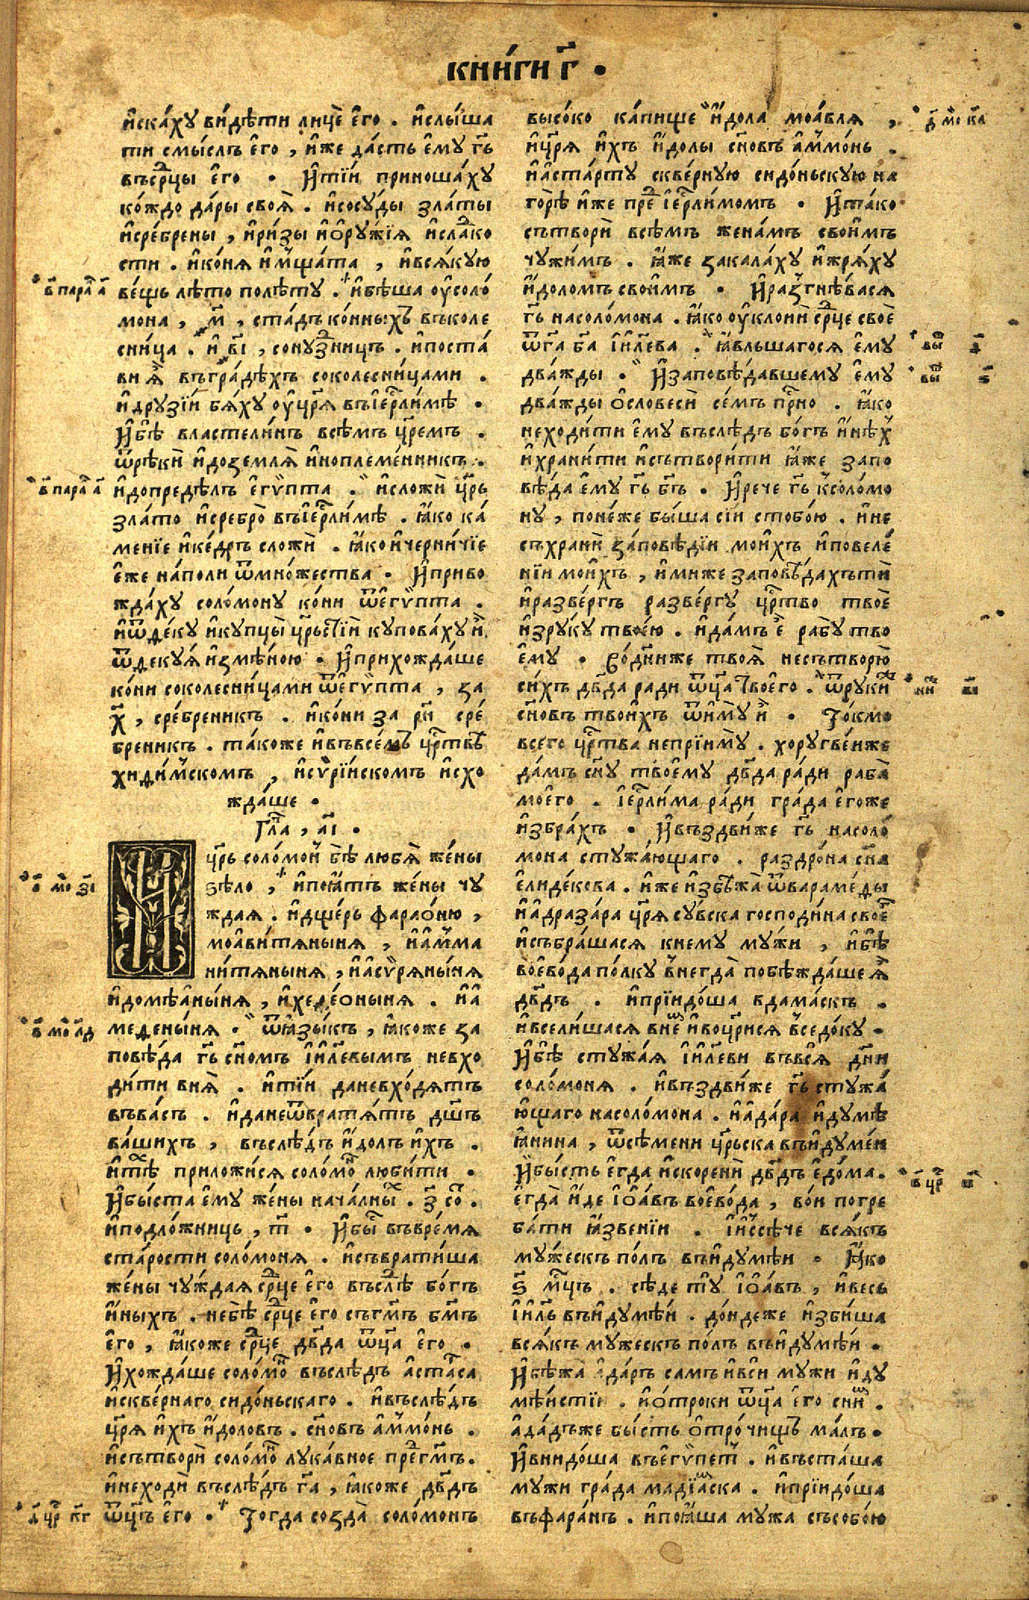 кни́ги г҃ .
и҆ска́ху ви́дѣти лицѐ е҆го̀ . и҆слы́ша
ти смы́слъ е҆го̀ , и҆́же да́сть е҆му̀ гь҃
въср҃цы е҆го̀ . И҆ті́и приноша́ху
ко́ждо да́ры своѧ̀ . и҆сосу́ды зла́ты
и҆сре́брены , и҆ри́зы и҆ѻ҆ру́жїѧ и҆сла́ко
сти . и҆ко́нѧ и҆мща́та , и҆всѧ́кую
в҃ пара́ а҃
ве́щь лѣ́то полѣ́ту . и҆бѣ́ша оу҆соло́
мона , м҃ , ста́дъ ко́нныхъ въколе
сни́ца . и҆ в҃і , сону́зницъ . и҆поста́
ви ѧ҆̀ въгра́дѣхъ соколесни́цами .
и҆дру́зїи бѧ́ху оу҆цр҃ѧ въі҆ер҃лимѣ .
И҆бѣ̀ власте́линъ всѣ́мъ цр҃емъ .
ѿрѣкѝ и҆доземлѧ̀ и҆ноплеме́нникъ .
в҃ пара́ а҃
и҆допредѣ́лъ е҆гѵ́пта . и҆сложѝ цр҃ь
зла́то и҆сребро̀ въі҆ер҃лимѣ . ꙗ҆́ко ка́
менїе и҆ке́дръ сложѝ . ꙗ҆́ко и҆черни́чїе
е҆́же на́поли ѿмно́жества . И҆приво
жда́ху соло́мону ко́ни ѿе҆гѵ́пта .
и҆ѿде́ку и҆купцы̀ цр҃ьстїи купова́ху и҆̀ .
ѿдекуѧ̀ и҆змѣ́ною . И҆прихожда́ше
ко́ни соколесни́цами ѿе҆гѵ́пта , за
х҃ , сре́бреникъ . и҆ко́ни за рн҃ сре́
бреникъ . та́коже и҆въвсе́мъ цр҃твѣ
хиди́мском , и҆сѵрїи́скомъ и҆схо
жда́ше .
Гл҃а , а҃і .
Цр҃ь соло́мон бѣ̀ любѧ̀ же́ны
в҃ мо зі҃
ѕѣло̀ , и҆поꙗ́тъ же́ны чу
жда́ѧ . и҆дще́рь фараѻ́ню ,
моави́тѧныня , и҆а҆мма
ни́тѧныня , и҆а҆сѵ́рѧныня
и҆домѣ́аныня , и҆хеле́ѻныня . и҆а҆
в҃ мо лд
меде́ныня . ѿꙗ҆зы́къ , ꙗ҆́коже за
повѣ́да гь҃ сн҃омъ і҆и҃левымъ невхо
ди́ти внѧ̀ . и҆ті́и даневхо́дѧтъ
въва́съ . и҆данеѿвратѧ́тъ дш҃ъ
ва́шихъ , въслѣ́дъ и҆́долъ и҆́хъ .
и҆тѣ́ приложи́сѧ соломо́ люби́ти .
И҆бы́ста е҆му̀ же́ны нача́лны . з҃ со .
и҆подло́жницъ , т҃ . И҆бы въвре́мѧ
ста́рости соло́монѧ . и҆съврати́ша
же́ны чу́ждаѧ ср҃це е҆го̀ въслѣ́ бо́гъ
и҆́ныхъ . небѣ̀ ср҃це е҆го̀ съгм҃ъ бм҃ъ
е҆го̀ , ꙗ҆́коже ср҃це дв҃да ѿц҃а е҆го̀ .
И҆хожда́ше соломо́ въслѣ́дъ а҆ста́са
и҆скве́рнаго сидо́ньскаго . и҆въслѣ́дъ
цр҃ѧ и҆́хъ и҆́доловъ . сн҃овъ а҆ммо́нь .
и҆сътворѝ соломо́ лука́вное пре́гм҃ъ .
и҆неходѝ въслѣ́дъ га҃ , ꙗ҆́коже дв҃дъ
д҃ цр҃ кг
ѿц҃ъ е҆го̀ . Тогда созда̀ соло́монъ
высо́ко ка́пище и҆́дола моа́влѧ ,
д҃ мо ка
и҆цр҃ѧ и҆́хъ и҆́долы сн҃овъ а҆ммо́нь .
и҆аста́рту скве́рную сидо́ньскую на
горѣ̀ и҆́же пре́ і҆ер҃лимомъ . И҆та́ко
сътворѝ всѣ́мъ жена́мъ свои́мъ
чужи́мъ . ꙗ҆́же закала́ху и҆жрѧ́ху
и҆́доломъ свои́мъ . И҆разгнѣ́васѧ
гь҃ насоло́мона . ꙗ҆́ко оу҆клонѝ ср҃це своѐ
ѿга҃ ба҃ і҆и҃лева . ꙗ҆́вльшагосѧ е҆му̀
два́жды . И҆заповѣ́давшему е҆му̀
два́жды ѻ҆словесѝ се́мъ пр҃но . ꙗ҆́ко
неходи́ти е҆му̀ въслѣ́дъ бо́гъ и҆нѣ́х
и҆храни́ти и҆сътвори́ти ꙗ҆́же запо
вѣ́да е҆му̀ гь҃ бг҃ъ . И҆рече гь҃ ксоло́мо
ну , поне́же бы́ша сїѝ стобо́ю . и҆не
съхранѝ за́повѣдїи мои́хъ и҆повеле́
нїи мои́хъ , и҆́миже заповѣ́дахътѝ
и҆разве́ргъ разве́ргу цр҃тво твоѐ
и҆зру́ку твоє́ю . и҆да́мъ е҆ рабу̀ тво
е҆му̀ . Во́дниже твоѧ̀ несътворю̀
си́хъ дв҃да ради ѿц҃а Твоего . ѿрукѝ
сн҃овъ твои́хъ ѿиму̀ и҆̀ . То́кмо
всего̀ цр҃тва неприиму̀ . хоругве́ниже
да́мъ сн҃у твоему̀ дв҃да ра́ди раба̀
моего . і҆ер҃лима ра́ди гра́да е҆го́же
и҆збра́хъ . И҆въздви́же гь҃ насоло́
мона стужа́ющаго . раздро́на сн҃а
е҆лиде́кова . и҆́же и҆збѣжа̀ ѿвараме́ды
и҆а҆дразара цр҃ѧ су́вска господи́на свое
и҆събра́шасѧ кнему̀ му́жи , и҆бѣ̀
воево́да по́лку внегда̀ побѣжда́ше ѧ҆
дв҃дъ . и҆прїидо́ша вдама́скъ .
и҆всели́шасѧ вне́ и҆воцр҃исѧ вседо́ку .
И҆бѣ̀ стужа́ѧ і҆и҃леви въвсѧ̀ дн҃и
соло́монѧ . и҆въздви́же гь҃ стужа́
ющаго насоло́мона . и҆а҆дара и҆думѣ
ꙗ҆́нина , ѿсѣ́мени цр҃ьска въи҆думе́и
И҆бысть е҆гда̀ и҆скоренѝ дв҃дъ е҆до́ма .
е҆гда̀ и҆́де і҆ѻа́въ воево́да , во́и погре
ба́ти ꙗ҆́звенїи . и҆и҆ссѣ́че всѧ́къ
му́жескъ по́лъ въи҆думѣ́и . Ꙗ҆́ко
ѕ҃ мц҃ъ . сѣ́де ту і҆ѻа́въ , и҆ве́сь
і҆и҃ль въи҆думѣ́и . до́ндеже и҆зби́ша
всѧ́къ му́жескъ по́лъ въи҆думѣ́и .
И҆бѣжа̀ а҆даръ са́мъ и҆всѝ му́жи и҆ду
мѣ́истїи . и҆ѻ҆́троки ѿц҃а е҆го̀ сни .
а҆да́дъже бы́сть ѻ҆́трочищъ ма́лъ .
И҆внидо́ша въе҆гѵ́пет . и҆въста́ша
му́жи гра́да мадїа́ска . и҆прїидо́ша
въфара́нъ . и҆поꙗ́ша му́жа съсобо́ю